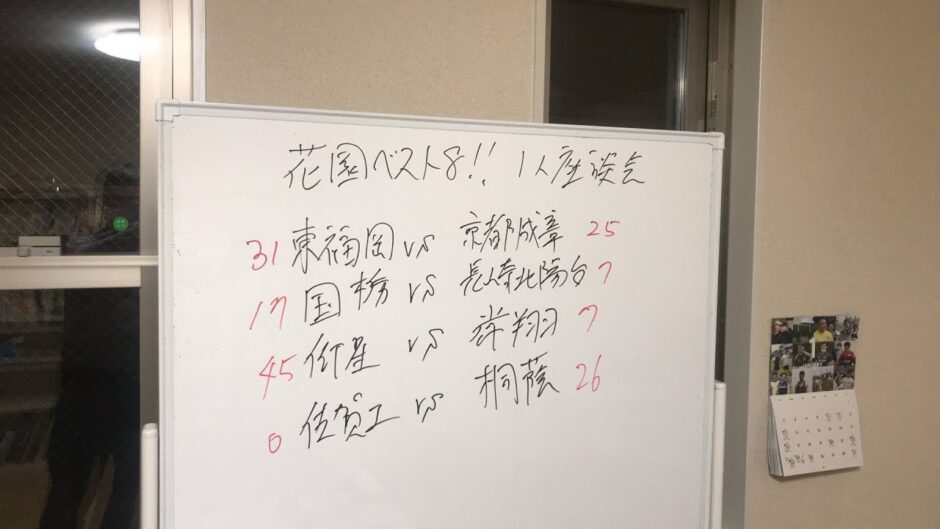 花園ベスト8!! 1人座談会
31 東福岡 vs 京都成章 25
17 国栃 vs 長崎北陽台 7
45 仰星 vs 常翔 7
0 佐賀工 vs 桐蔭 26